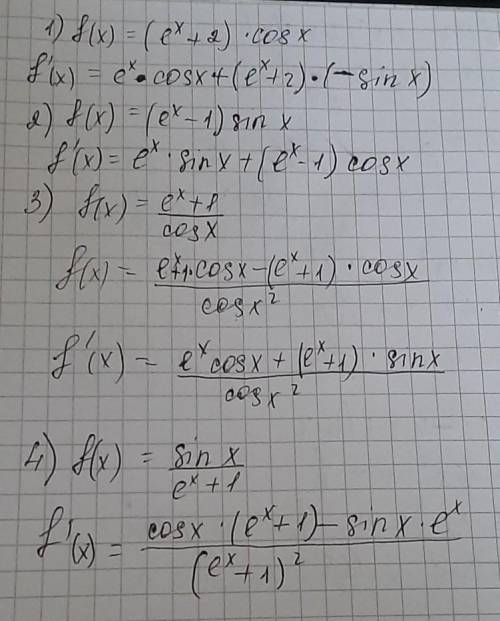 1) f(x) = (eˣ+2) · cosx
f'(x) = eˣ · cosx + (eˣ+2) · (-sin x)
2) f(x) = (eˣ-1) sin x
f'(x) = eˣ · sin x + (eˣ-1) cosx
3) f(x) = (eˣ+1)/(cosx)
f(x) = (eˣ+1 · cosx - (eˣ+1) · cosx)/(cosx²)
f'(x) = (eˣ cosx + (eˣ+1) · sinx)/(cosx²)
4) f(x) = (sin x)/(eˣ+1)
f'(x) = (cosx · (eˣ+1) - sinx · eˣ)/((eˣ+1)²)